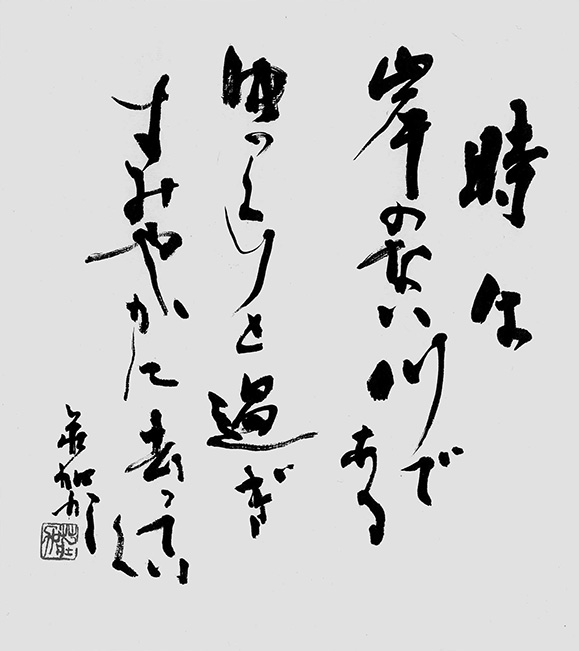 時は
岸のない川である
ゆっくりと過ぎ
すみやかに去っていく